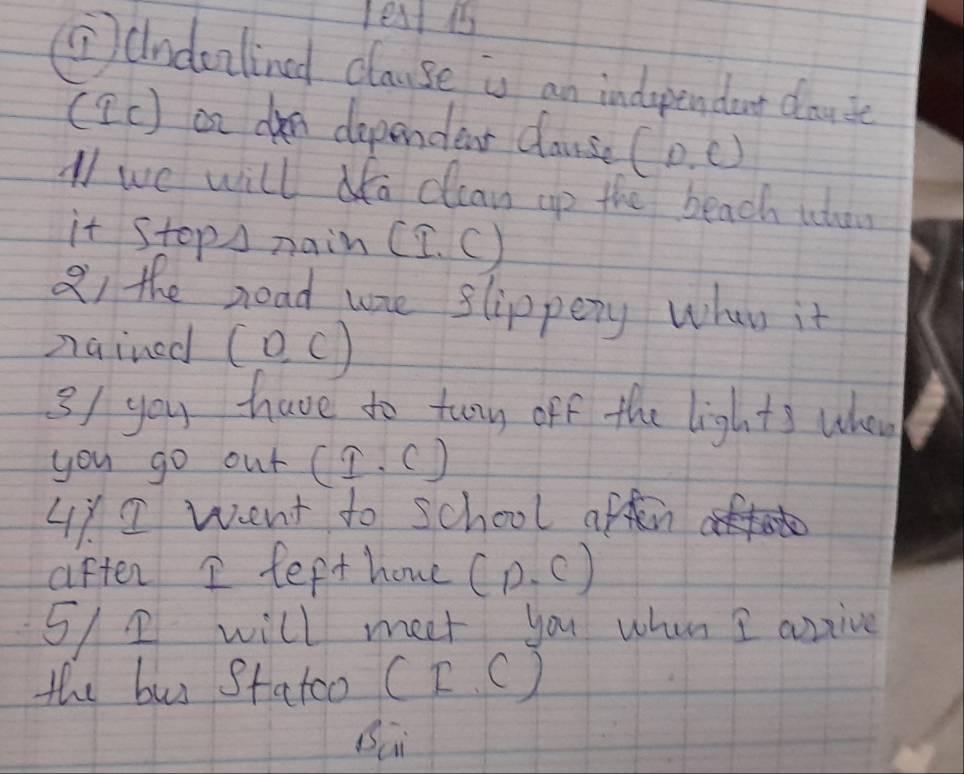 Test 15
(I) Underlined clause is an independent clause
(I C) or dependent clause (D.C)
1/ we will clean up the beach when
it stops rain (I. C)
2, the road wre slippery when it
rained (D C)
3/ you have to turn off the lights when
you go out (I. C)
4/ I went to school
after I left home (D.C)
5/ I will meet you when I arrive
the bus Statoo (I.C)